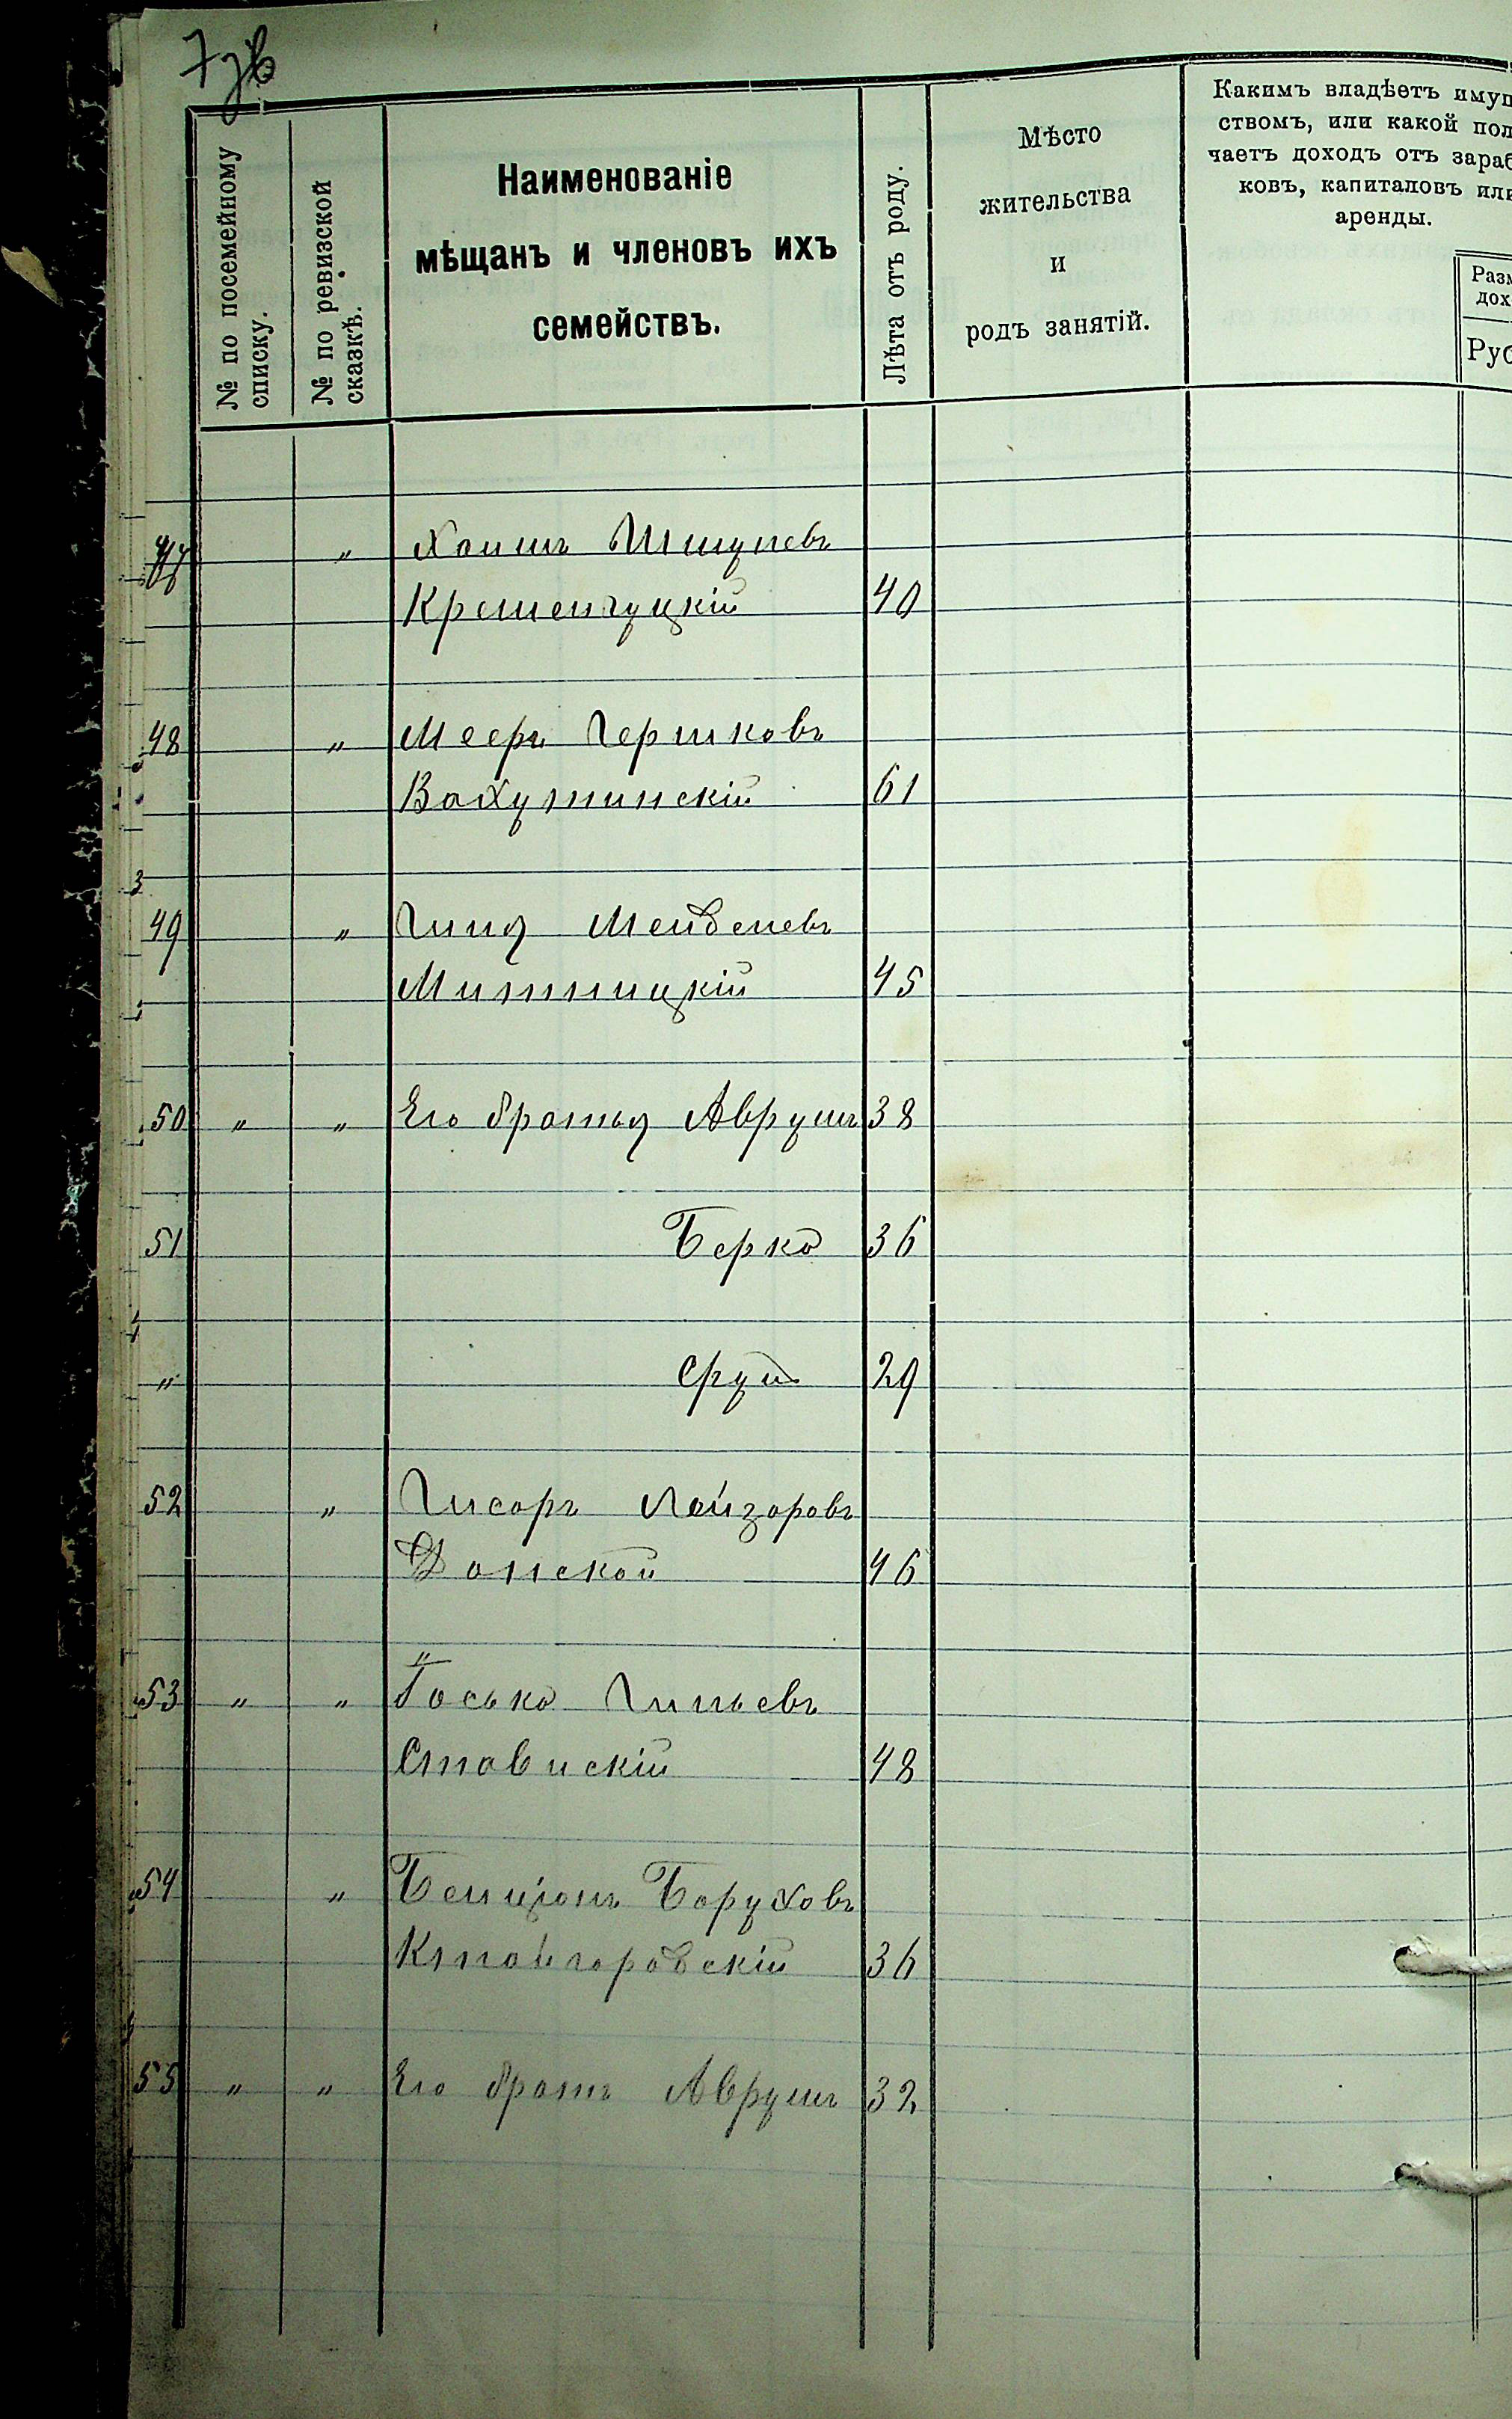 7 зв
№ по посемейному
списку.
№ по ревизской
сказкѣ.
Наименованіе
мѣщанъ и членовъ ихъ
семействъ.
Лѣта отъ роду.
Мѣсто
жительства
и
родъ занятій.
Какимъ владѣетъ имущ
ствомъ, или какой пол
чаетъ доходъ отъ зараб
ковъ, капиталовъ или
аренды.
Разм
дох
Руб
47 " Хаимъ Шмулевъ
Кременчуцкій 40
48 " Мееръ Гершковъ
Вахутинскій 61
49 " Гиля Менделевъ
Митницкій 45
50 " " Его братья Аврумъ 38
51 Берко 36
" Сруль 29
52 " Лейзоровъ
Донской 46
53 " " Іосько
Ставискій 48
54 " Бенціонъ Баруховъ
36
55 " " Его братъ Аврумъ 32